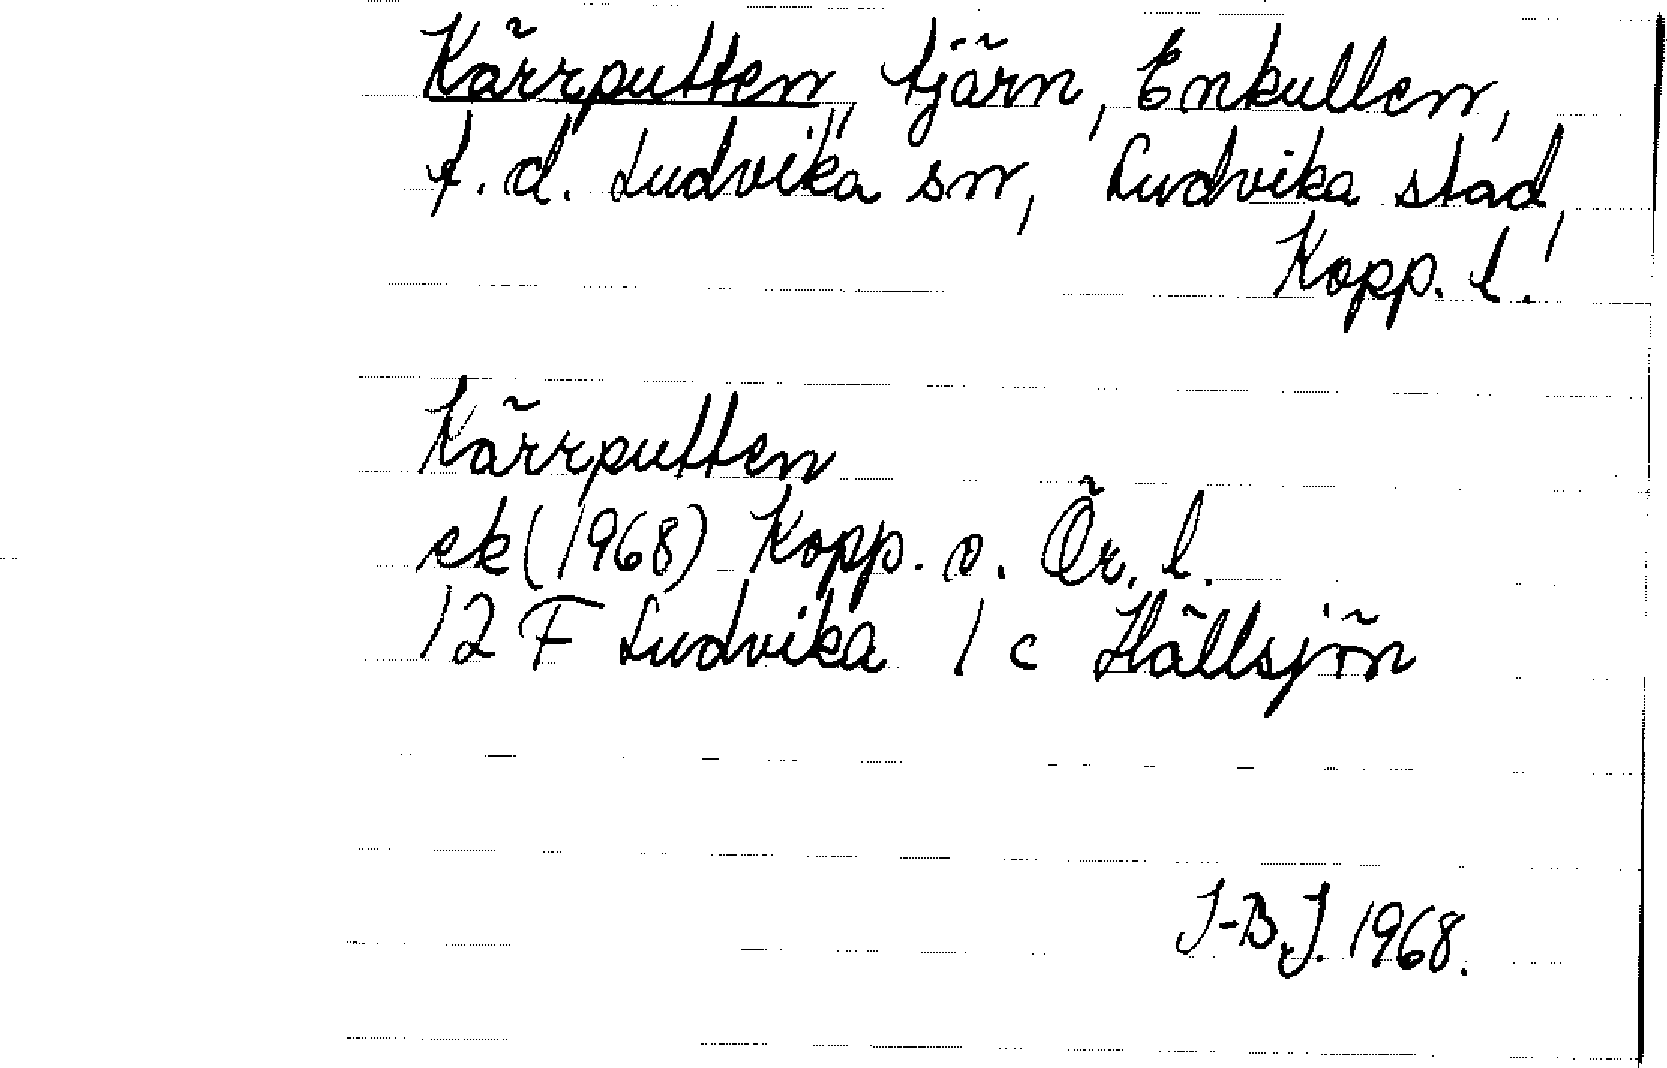 Kärrputten, tjärn, Enkullen,
f.d. Ludvika sn, Ludvika stad,
Kopp. l.
Kärrputten
ek (1968) Kopp. o. Ör. l.
12 F Ludvika 1 c Hällsjön
I-B.J. 1968.